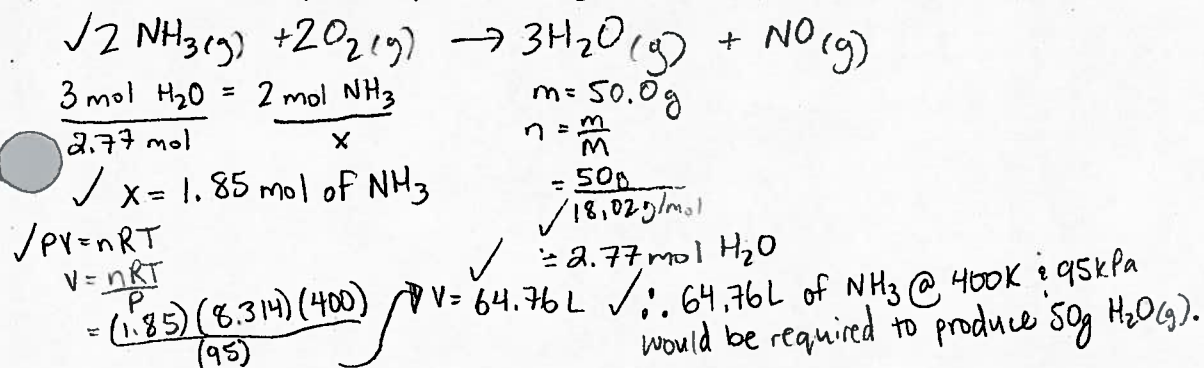 ✓2 NH₃(g) + 2O₂(g) → 3H₂O(g) + NO(g)
3 mol H₂O = 2 mol NH₃
2.77 mol x
✓ x = 1.85 mol of NH₃
m = 50.0g
n = m/M
= 50g
✓ 18.02g/mol
= 2.77 mol H₂O
✓ PV = nRT
V = nRT/P
= (1.85)(8.314)(400)
(95)
✓ V = 64.76 L
✓ ∴ 64.76L of NH₃ @ 400K & 95kPa
would be required to produce 50g H₂O(g).